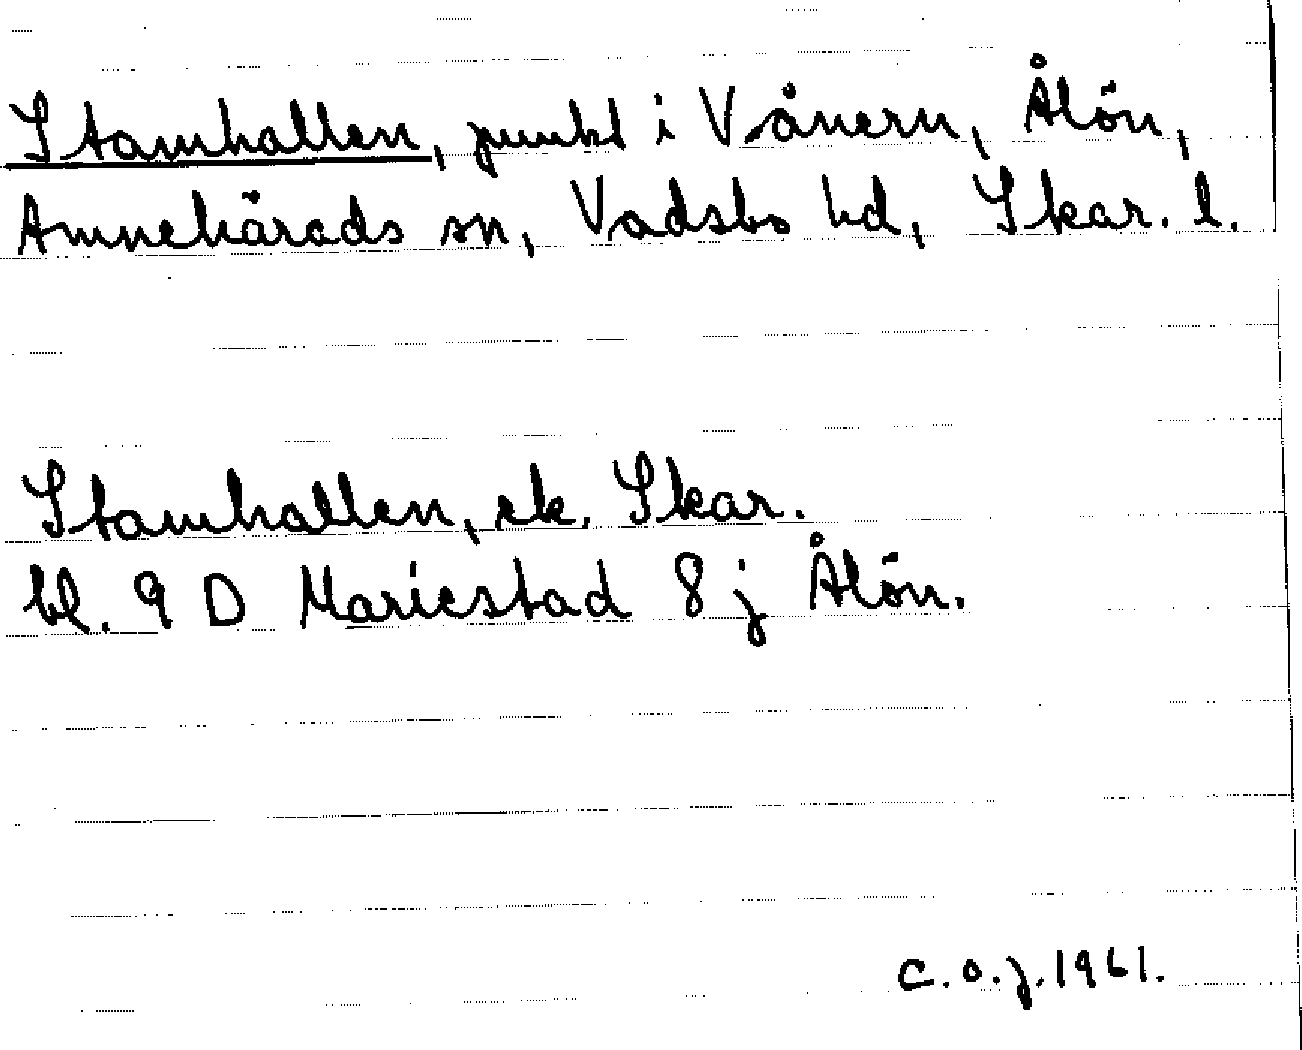 Stamhallen, punkt i Vänern, Ålön,
Amnehärads sn, Vadsbo hd, Skar. l.
Stamhallen, ek. Skar.
bl. 9 D Mariestad 8 j Ålön.
C.O.J. 1961.